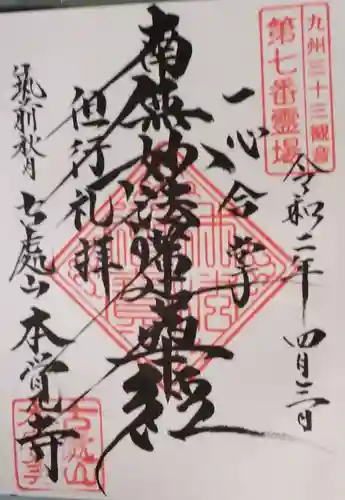 九州三十三観音
第七番霊場
令和二年 四月三日
一心合掌
南無妙法蓮華経
但行礼拝
筑前秋月
古處山 本覚寺